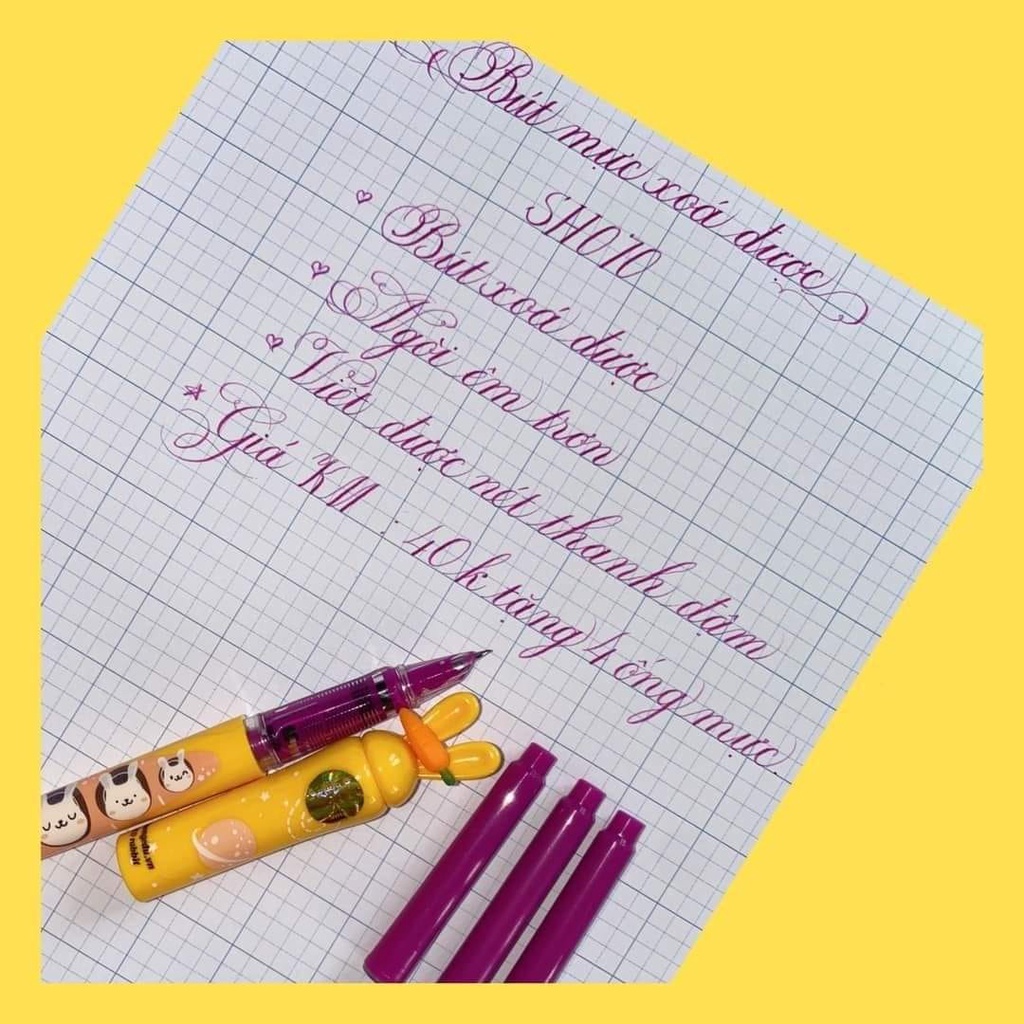 Bút mực xoá được
SH070
Bút xoá được
Ngòi êm trơn
Viết được nét thanh đậm
Giá KM : 40k tặng 4 ống mực
rabbit